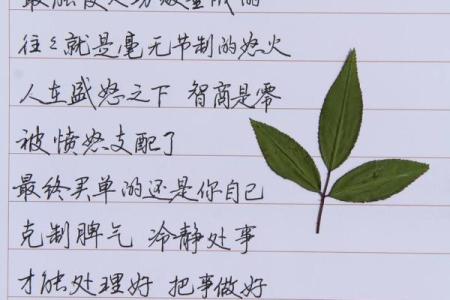 往々就是毫无节制的怒火
人在盛怒之下 智商是零
被愤怒支配了
最终买单的还是你自己
克制脾气 冷静处事
才能处理好 把事做好